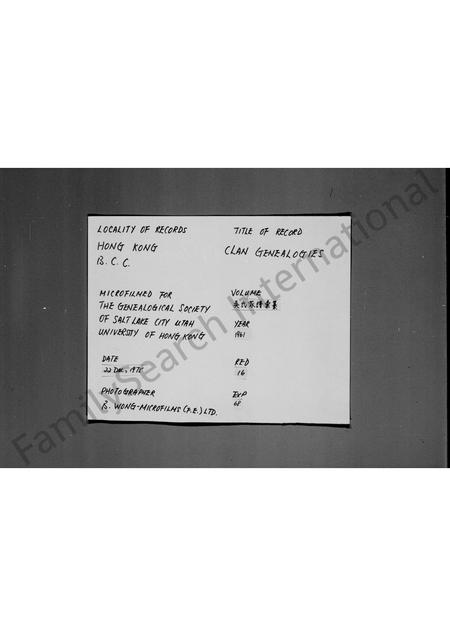 LOCALITY OF RECORDS
HONG KONG
B. C. C.
TITLE OF RECORD
CLAN GENEALOGIES
MICROFILMED FOR
THE GENEALOGICAL SOCIETY
OF SALT LAKE CITY UTAH
UNIVERSITY OF HONG KONG
VOLUME
YEAR
1961
DATE
22 DEC. 1975
RED
16
PHOTOGRAPHER
B. WONG-MICROFILMS (F.E.) LTD.
EXP
68
FamilySearch International